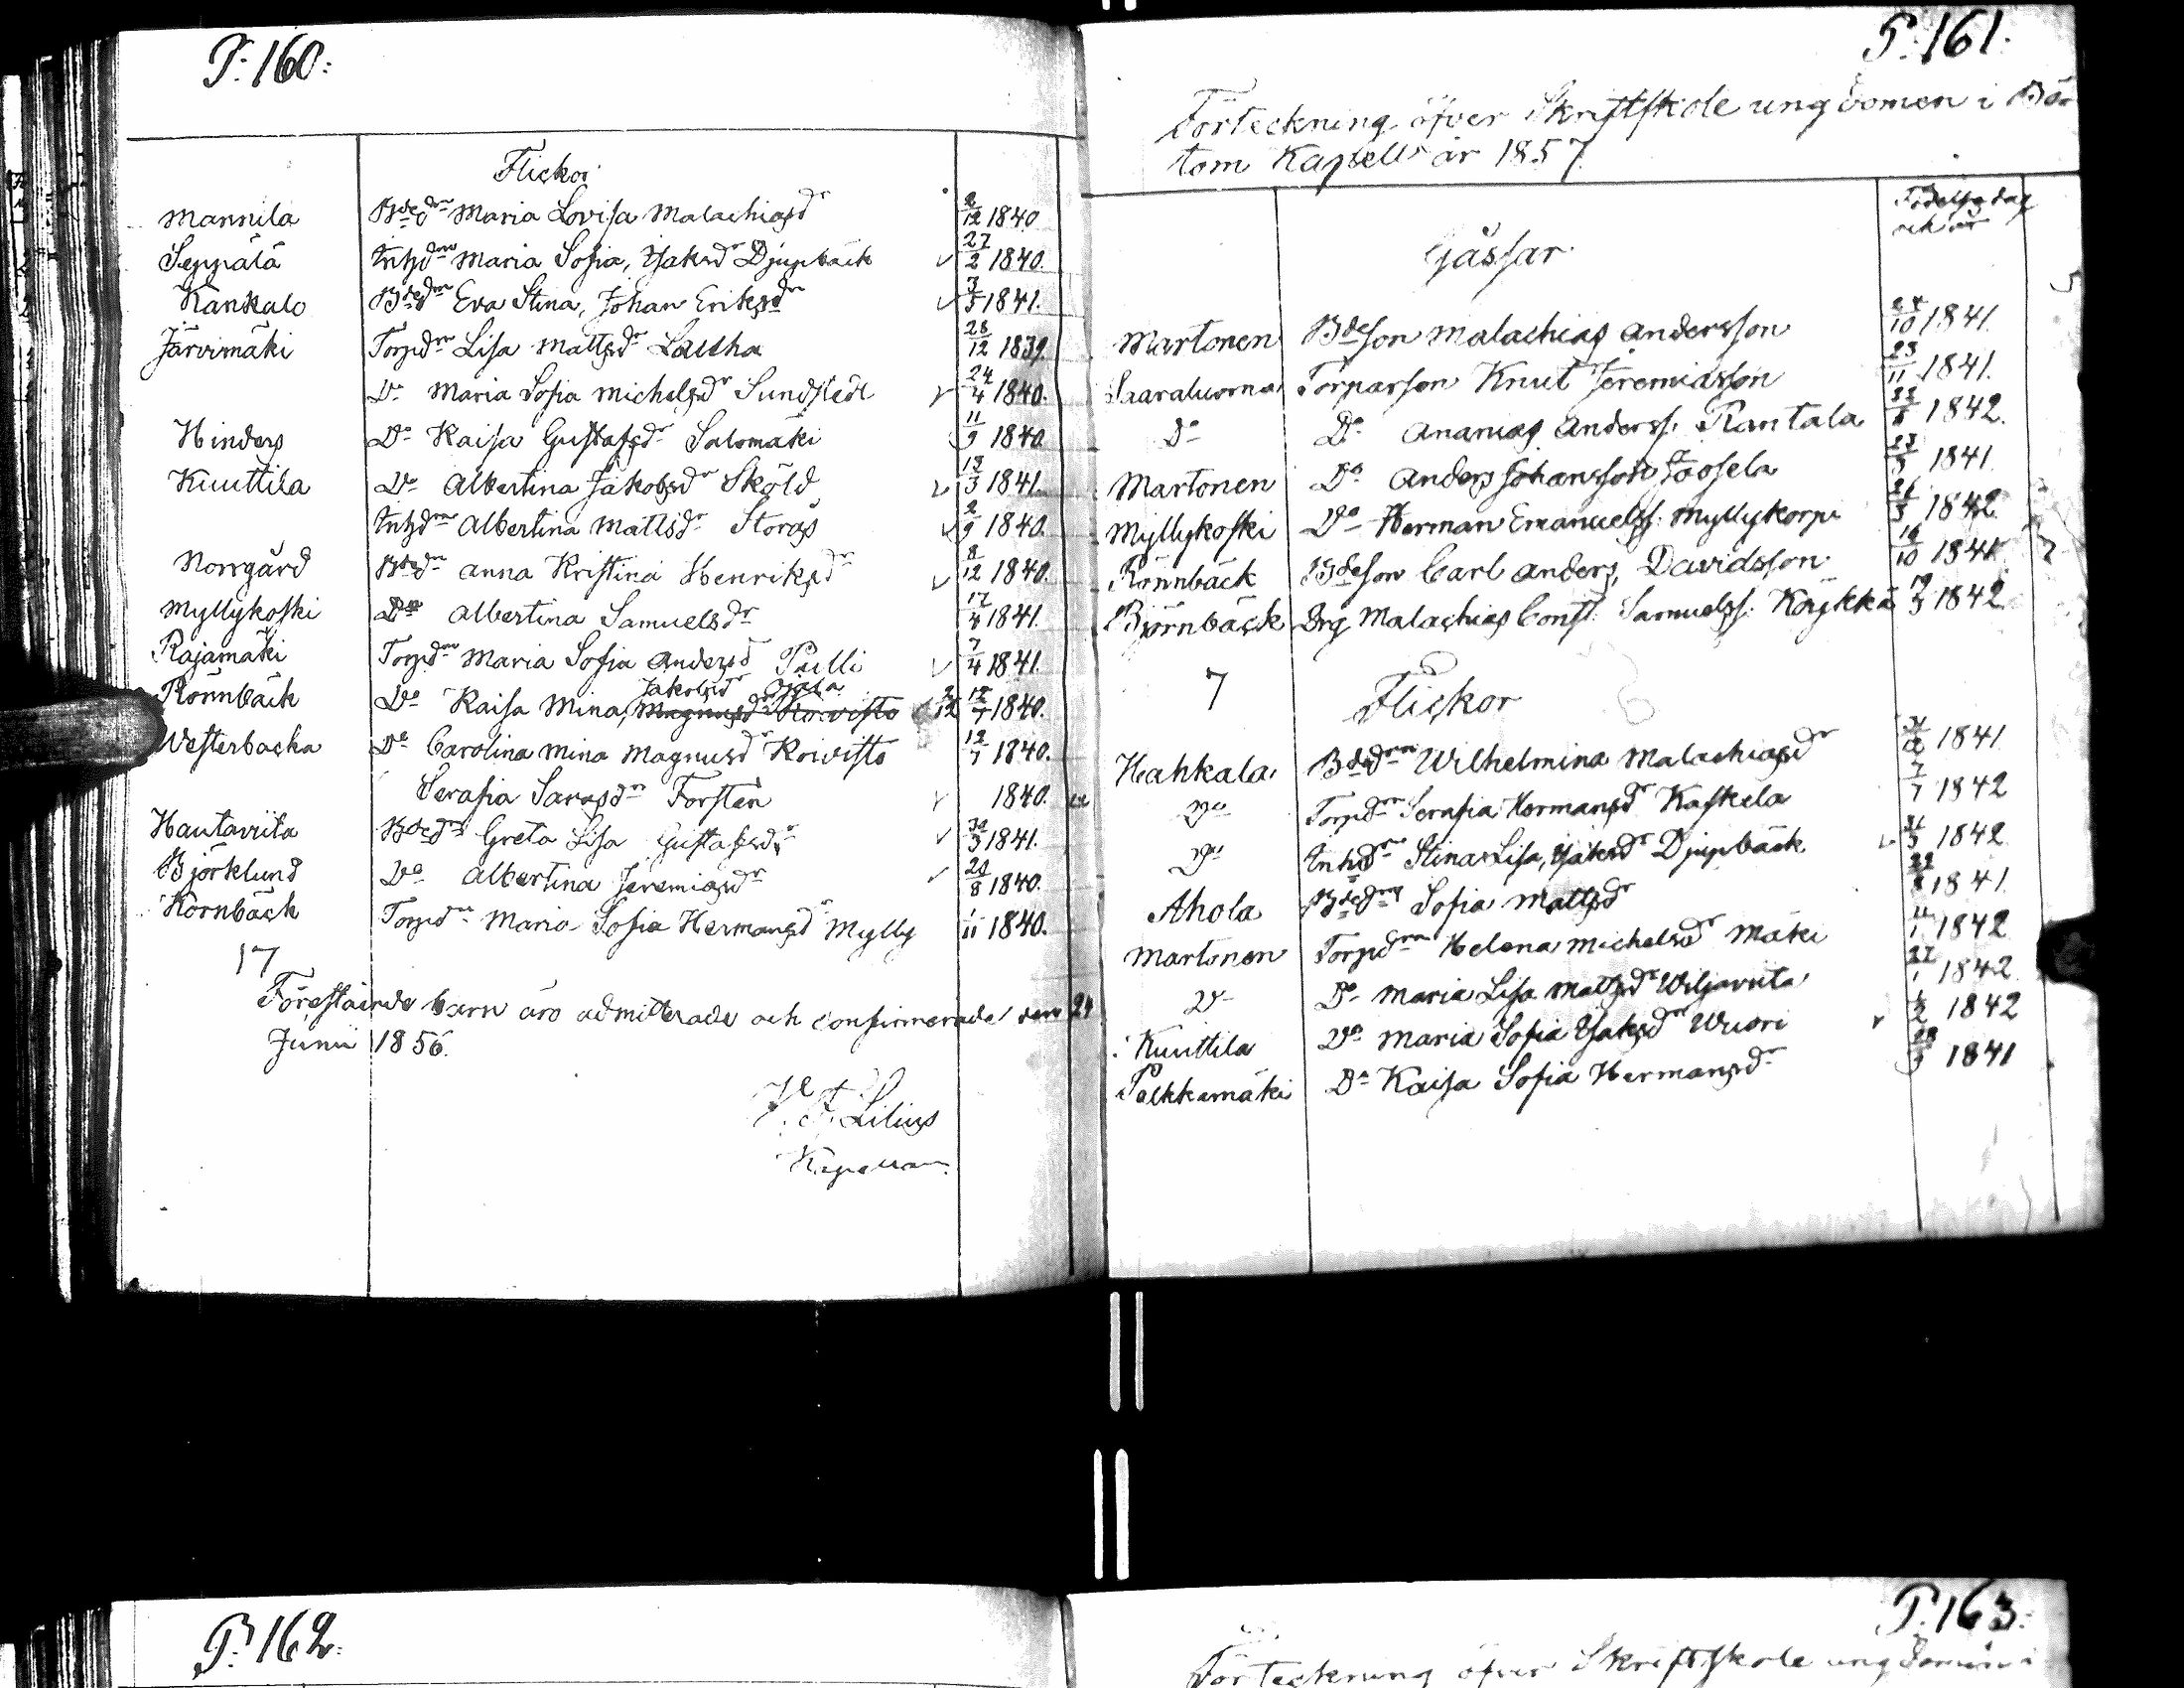 P. 160.
Flickor
Mannila Bdedr Maria Lovisa Malachiasdr 2/12 1840
Seppälä Inhdr Maria Sofia, Isaksdr Djupbäck 27/2 1840.
Kankalo Bdedr Eva Stina, Johan Eriksdr 3/5 1841.
Järvimäki Torpdr Lisa Mattsdr 28/12 1839
Do Maria Sofia Michelsdr Sundstedt 24/4 1840.
Hinders Do Kaisa Gustafsdr Salomäki 11/9 1840
Kuuttila Do Albertina Jakobsdr Sköld 13/3 1841.
Inhdr Albertina Mattsdr Storås 2/9 1840.
Norrgård Bdedr Anna Kristina Henriksdr 8/12 1840.
Myllykoski Do Albertina Samuelsdr 17/4 1841.
Rajamäki Torpdr Maria Sofia Andersd Pulli 7/4 1841.
Jakobsdr Ojala
Rönnbäck Do Kaisa Mina, Magnusdr Koivisto 12/7 1840.
Westerbacka Do Carolina Mina Magnusd Koivisto 12/7 1840.
Serafia Sarasdr Forsten 1840.
Hautaviita Bdedr Greta Lisa Gustafsdr 30/3 1841.
Björklund Do Albertina Jeremiasdr 20/8 1840.
Kornbäck Torpdr Maria Sofia Hermansd Mylly 1/11 1840.
17
Föreståënde barn äro admitterade och confirmerade den 24
Junii 1856.
Lilius
Kapellan.
P. 161.
Förteckning öfver Skriftskole ungdomen i Bö
tom Kapell år 1857.
Födelsedag
och år
Gåssar
Martonen Bdeson Malachias Andersson 24/10 1841.
Saaraluoma Torparson Knut Jeremiasson 23/11 1841.
Do Do Ananias Anderss. Rantala 1842.
Martonen Do Anders Johansson Joosela 1841
Myllykoski Do Herman Emanuelss. Myllykorpi 26/3 1842
Rönnbäck Bdeson Carl Anders, Davidsson 16/10 1841
Björnbäck Drg Malachias Const. Samuelss. Köykkä 19/3 1842
7
Flickor
Hahkala Bdedr Wilhelmina Malachiasdr 31/12 1841
Do Torpdr Serafia Hermansdr Kaskela 7/7 1842
Do Inhdr Stina Lisa, Isaksdr Djupbäck 31/3 1842
Ahola Bdedr Sofia Mattsdr 1841
Martonen Torpdr Helena Michelsdr Mäki 11/1 1842
Do Do Maria Lisa Mattsdr Wiljaviita 27/1 1842
Kuuttila Do Maria Sofia Isaksdr Wuori 1/2 1842
Palkkimäki Do Kaisa Sofia Hermansdr 1841
P. 162.
P. 163.
Förteckning öfver Skriftskole ungdomen i